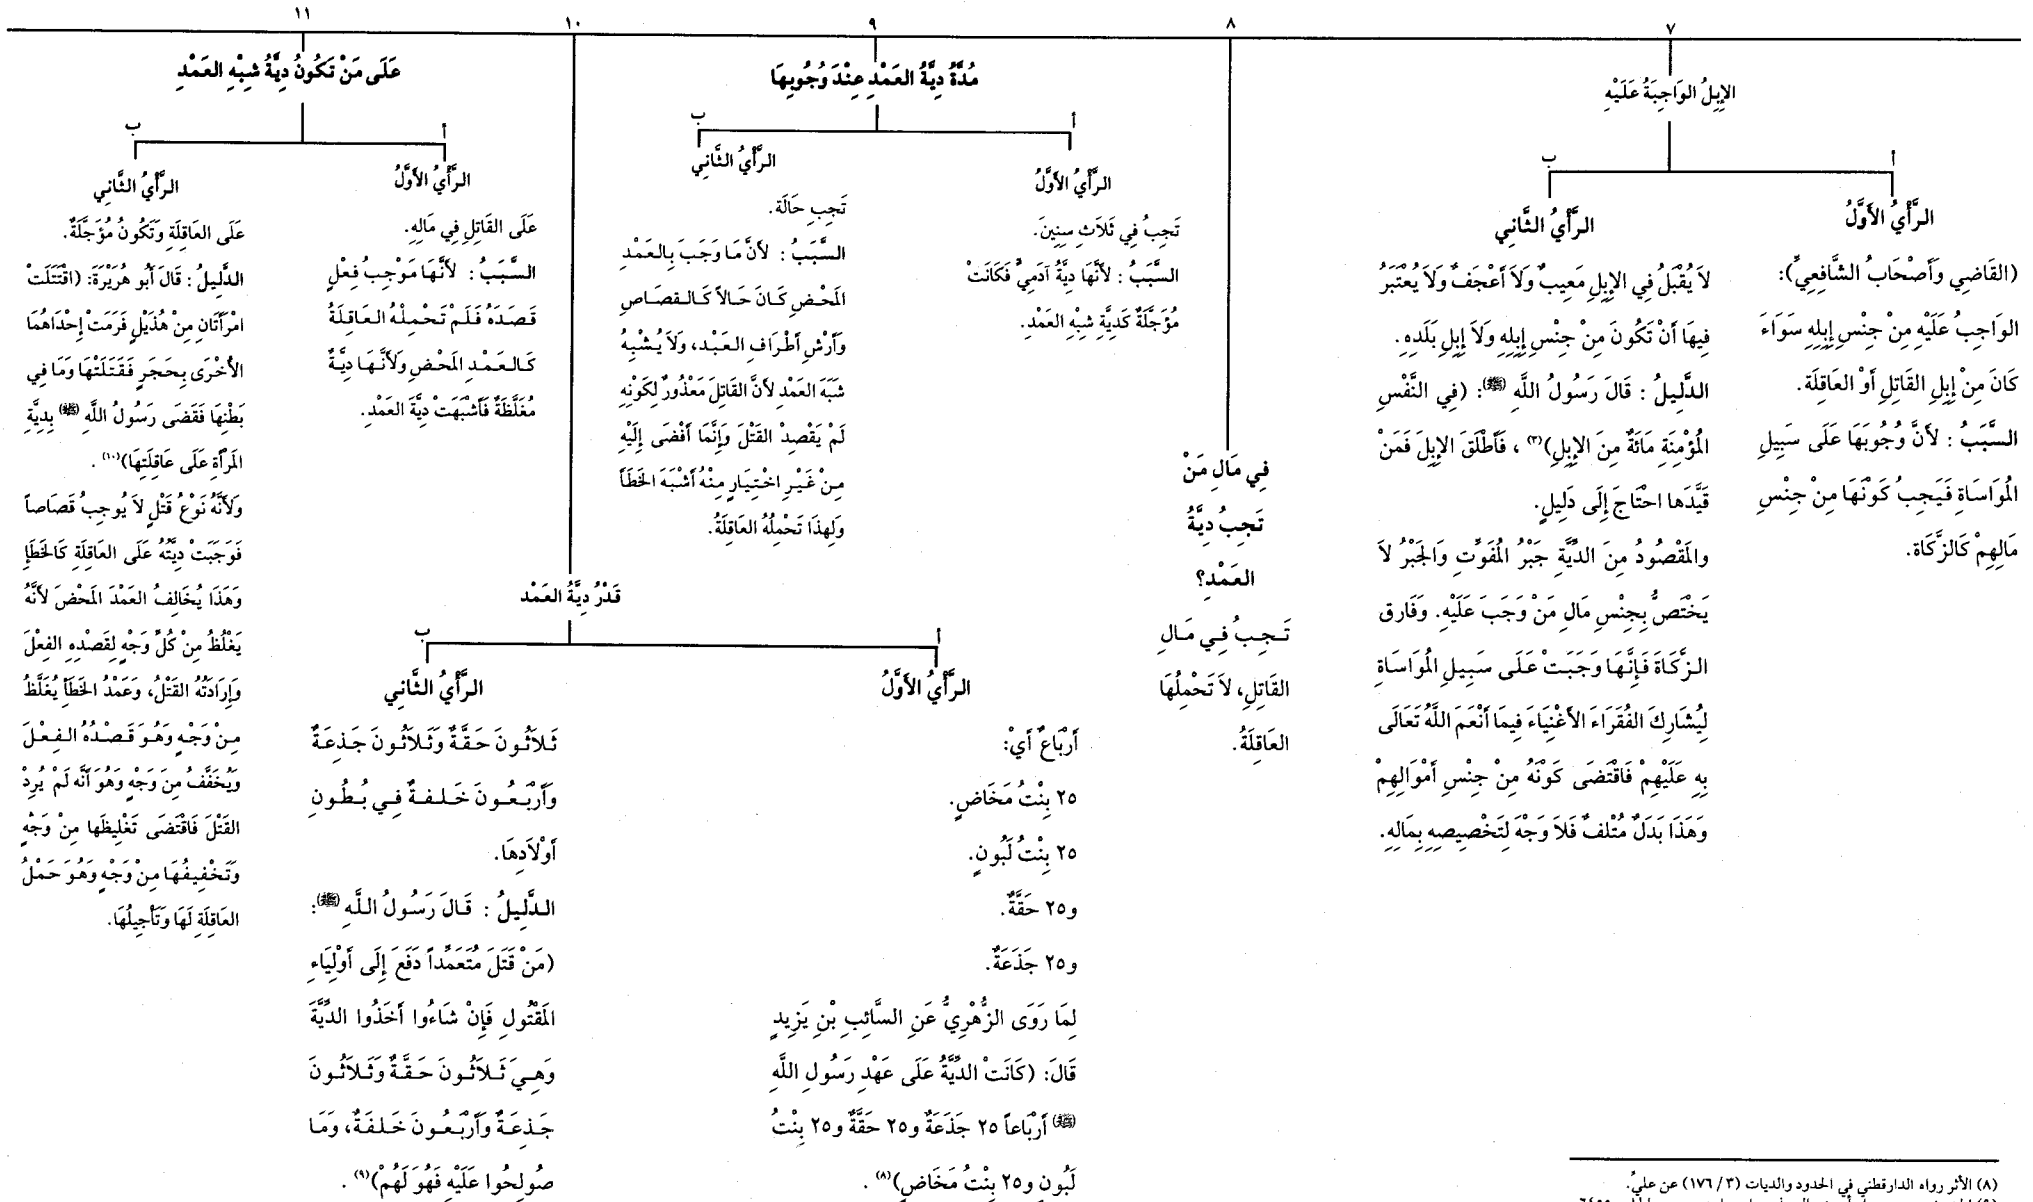 ٧
الإِبِلُ الوَاجِبَةُ عَلَيْهِ
أ
الرَّأْيُ الأَوَّلُ
(القَاضِي وَأَصْحَابُ الشَّافِعِيِّ):
الوَاجِبُ عَلَيْهِ مِنْ جِنْسِ إِبِلِهِ سَوَاءَ
كَانَ مِنْ إِبِلِ القَاتِلِ أَوْ العَاقِلَةِ.
السَّبَبُ : لأَنَّ وُجُوبَهَا عَلَى سَبِيلِ
المُوَاسَاةِ فَيَجِبُ كَوْنَهَا مِنْ جِنْسِ
مَالِهِمْ كَالزَّكَاة.
ب
الرَّأْيُ الثَّانِي
لاَ يُقْبَلُ فِي الإِبِلِ مَعِيبٌ وَلاَ أَعْجَفٌ وَلاَ يُعْتَبَرُ
فِيهَا أَنْ تَكُونَ مِنْ جِنْسِ إِبِلِهِ وَلاَ إِبِلِ بَلَدِهِ.
الدَّلِيلُ : قَالَ رَسُولُ اللَّهِ (ﷺ): (فِي النَّفْسِ
المُؤْمِنَةِ مَائَةٌ مِنَ الإِبِلِ)(٣) ، فَأَطْلَقَ الإِبِلَ فَمَنْ
قَيَّدَهَا احْتَاجَ إِلَى دَلِيلٍ.
والمَقْصُودُ مِنَ الدِّيَّةِ جَبْرُ المُفَوَّتِ وَالجَبْرُ لاَ
يَخْتَصُّ بِجِنْسِ مَالِ مَنْ وَجَبَ عَلَيْهِ. وَفَارق
الزَّكَاةَ فَإِنَّهَا وَجَبَتْ عَلَى سَبِيلِ المُوَاسَاةِ
لِيُشَارِكَ الفُقَرَاءَ الأَغْنِيَاءَ فِيمَا أَنْعَمَ اللَّهُ تَعَالَى
بِهِ عَلَيْهِمْ فَاقْتَضَى كَوْنَهُ مِنْ جِنْسِ أَمْوَالِهِمْ
وَهَذَا بَدَلُ مُتْلَفٌ فَلاَ وَجْهَ لِتَخْصِيصِهِ بِمَالِهِ.
٨
فِي مَالِ مَنْ
تَجِبُ دِيَّةُ
العَمْدِ؟
تَجِبُ فِي مَالِ
القَاتِلِ، لاَ تَحْمِلُهَا
العَاقِلَةُ.
٩
مُدَّةُ دِيَّةُ العَمْدِ عِنْدَ وُجُوبِهَا
أ
الرَّأْيُ الأَوَّلُ
تَجِبُ فِي ثَلاَثِ سِنِينَ.
السَّبَبُ : لأَنَّهَا دِيَّةُ آدَمِيٍّ فَكَانَتْ
مُؤَجَّلَةٌ كَدِيَّةِ شِبْهِ العَمْدِ.
ب
الرَّأْيُ الثَّانِي
تَجِبِ حَالَة.
السَّبَبُ : لأَنَّ مَا وَجَبَ بِالعَمْدِ
المَحْضِ كَانَ حَالاً كَالقصَاصِ
وَأَرْشِ أَطْرَافِ العَبْدِ، وَلاَ يُشْبِهُ
شَبَهَ العَمْدِ لأَنَّ القَاتِلَ مَعْذُورٌ لِكَوْنِهِ
لَمْ يَقْصِدْ القَتْلَ وَإِنَّمَا أَفْضَى إِلَيْهِ
مِنْ غَيْرِ اخْتِيَارٍ مِنْهُ أَشْبَهَ الخَطَأَ
وَلِهذَا تَحْمِلُهُ العَاقِلَةُ.
١٠
قَدْرُ دِيَّةُ العَمْد
أ
الرَّأْيُ الأَوَّلُ
أَرْبَاعٌ أَيْ:
٢٥ بِنْتُ مَخَاضٍ.
٢٥ بِنْتُ لَبُونٍ.
و٢٥ حَقَّةٌ.
و٢٥ جَذَعَةٌ.
لِمَا رَوَى الزُّهْرِيُّ عَنِ السَّائِبِ بْنِ يَزِيدٍ
قَالَ: (كَانَتْ الدِّيَّةُ عَلَى عَهْدِ رَسُولِ اللَّهِ
(ﷺ) أَرْبَاعاً ٢٥ جَذَعَةٌ و٢٥ حَقَّةٌ و٢٥ بِنْتُ
لَبُونٍ و٢٥ بِنْتُ مَخَاضٍ)(٨) .
ب
الرَّأْيُ الثَّانِي
ثَلاَثُونَ حَقَّةٌ وَثَلاَثُونَ جَذعَةٌ
وَأَرْبَعُونَ خَلفةٌ فِي بُطُونِ
أَوْلاَدِهَا.
الدَّلِيلُ : قَالَ رَسُولُ اللَّهِ (ﷺ):
(مَنْ قَتَلَ مُتَعَمِّداً دَفَعَ إِلَى أَوْلِيَاءِ
المَقْتُولِ فَإِنْ شَاءُوا أَخَذُوا الدِّيَّةَ
وَهِيَ ثَلاَثُونَ حَقَّةٌ وَثَلاَثُونَ
جَذعَةٌ وَأَرْبَعُونَ خَلفَةٌ، وَمَا
صُولِحُوا عَلَيْهِ فَهُوَ لَهُمْ)(٩) .
١١
عَلَى مَنْ تَكُونُ دِيَّةُ شِبْهِ العَمْدِ
أ
الرَّأْيُ الأَوَّلُ
عَلَى القَاتِلِ فِي مَالِهِ.
السَّبَبُ : لأَنَّهَا مَوْجِبُ فِعْلٍ
قَصَدَهُ فَلَمْ تَحْمِلْهُ العَاقِلَةُ
كَالعَمْدِ المَحْضِ وَلأَنَّهَا دِيَّةٌ
مُغَلَّظَةٌ فَأَشْبَهَتْ دِيَّةَ العَمْدِ.
ب
الرَّأْيُ الثَّانِي
عَلَى العَاقِلَةِ وَتَكُونُ مُؤَجَّلَةٌ.
الدَّلِيلُ : قَالَ أَبُو هُرَيْرَةَ: (اقْتَتَلَتْ
امْرَأَتَانِ مِنْ هُذَيْلٍ فَرَمَتْ إِحْدَاهُمَا
الأُخْرَى بِحَجَرٍ فَقَتَلَتْهَا وَمَا فِي
بَطْنِهَا فَقَضَى رَسُولُ اللَّهِ (ﷺ) بِدِيَّةِ
المَرْأَةِ عَلَى عَاقِلَتِهَا)(١٠) .
وَلأَنَّهُ نَوْعُ قَتْلٍ لاَ يُوجِبُ قَصَاصاً
فَوَجَبَتْ دِيَّتُهُ عَلَى العَاقِلَةِ كَالخَطَإِ
وَهَذَا يُخَالِفُ العَمْدَ المَحْضَ لأَنَّهُ
يَغْلُظُ مِنْ كُلِّ وَجْهٍ لِقَصْدِهِ الفِعْلَ
وَإِرَادَتُهُ القَتْلُ، وَعَمْدُ الخَطَأِ يُغَلَّظُ
مِنْ وَجْهٍ وَهُوَ قَصْدُهُ الفِعْلَ
وَيُخَفَّفُ مِنَ وَجْهٍ وَهُوَ أَنَّه لَمْ يُرِدْ
القَتْلَ فَاقْتَضَى تَغْلِيظَها مِنْ وَجْهٍ
وَتَخْفِيفُهَا مِنْ وَجْهٍ وَهُوَ حَمْلُ
العَاقِلَةِ لَهَا وَتَأْجِيلُهَا.
(٨) الأثر رواه الدارقطني في الحدود والديات (٣/١٧٦) عن عليّ.